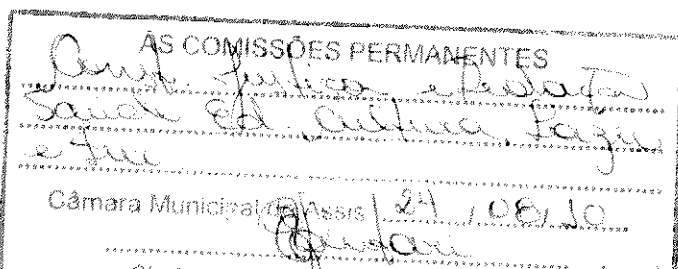 ÀS COMISSÕES PERMANENTES
Const. Justiça e Redação
Saúde Ed. Cultura, Lazer
e
Câmara Municipal de Assis 24, 08, 10